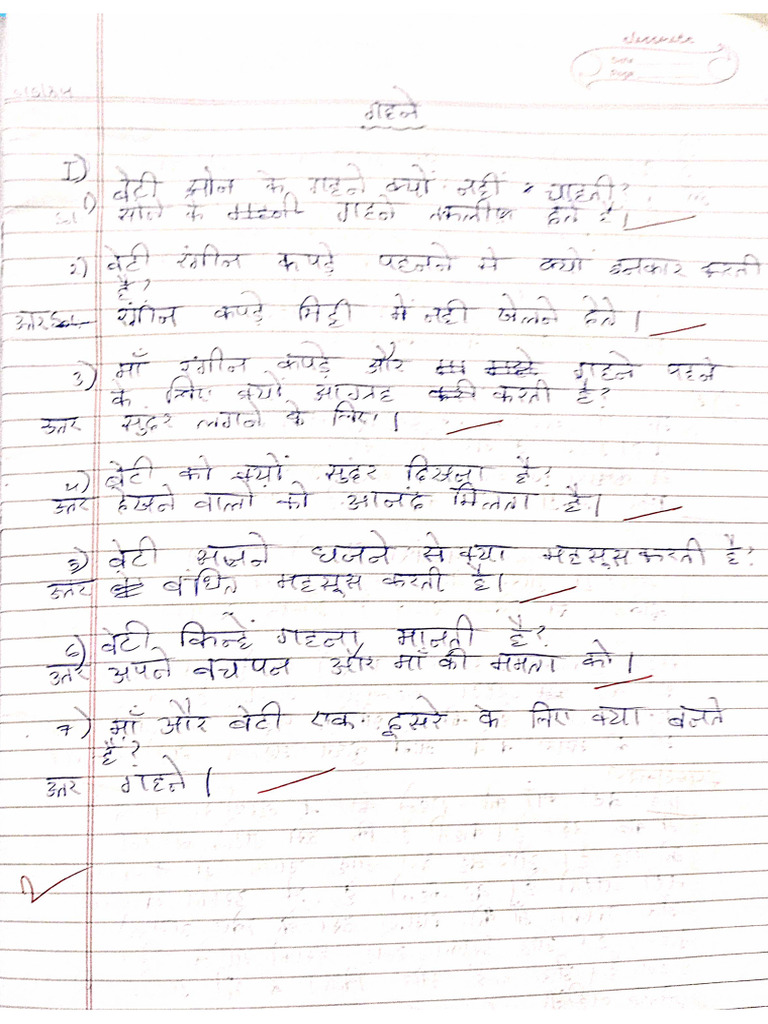 classmate
Date
Page
गहने
I)
1) बेटी सोन के गहने क्यों नहीं चाहती?
सोने के गहने तकलीफ देते है।
2) बेटी रंगीन कपड़े पहनने से क्यों इनकार करती
है?
उत्तर रंगीन कपड़े मिट्टी में नही खेलने देते।
3) माँ रंगीन कपड़े और गहने पहने
के लिए क्यों आग्रह करती है?
उत्तर सुंदर लगने के लिए।
4) बेटी को क्यों सुंदर दिखना है?
उत्तर देखने वालो को आनंद मिलता है।
5) बेटी सजने धजने से क्या महसूस करती है?
उत्तर बंधित महसूस करती है।
6) बेटी किन्हें गहना मानती है?
उत्तर अपने बचपन और माँ की ममता को।
7) माँ और बेटी एक दूसरे के लिए क्या बनते
हैं?
उत्तर गहने।